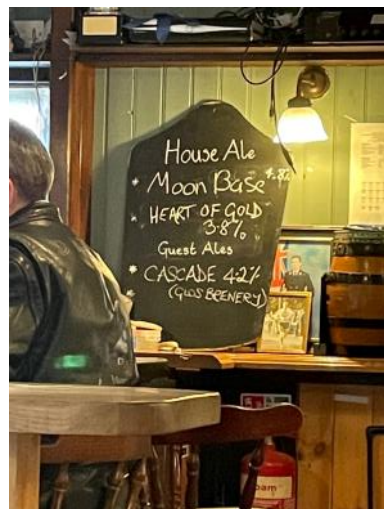 House Ale
* Moon Base 4.8%
* HEART OF GOLD
3.8%
Guest Ales
* CASCADE 4.2%
* (GLOS BREWERY)
foam